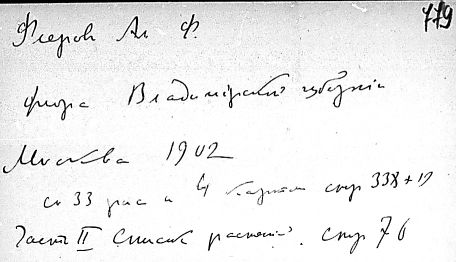 779
Флеров Ал Ф.
флора Владимірской губерніи
Москва 1902
съ 33 рис и 4 картами стр 338 + 19
Часть II Список растеній. стр 76